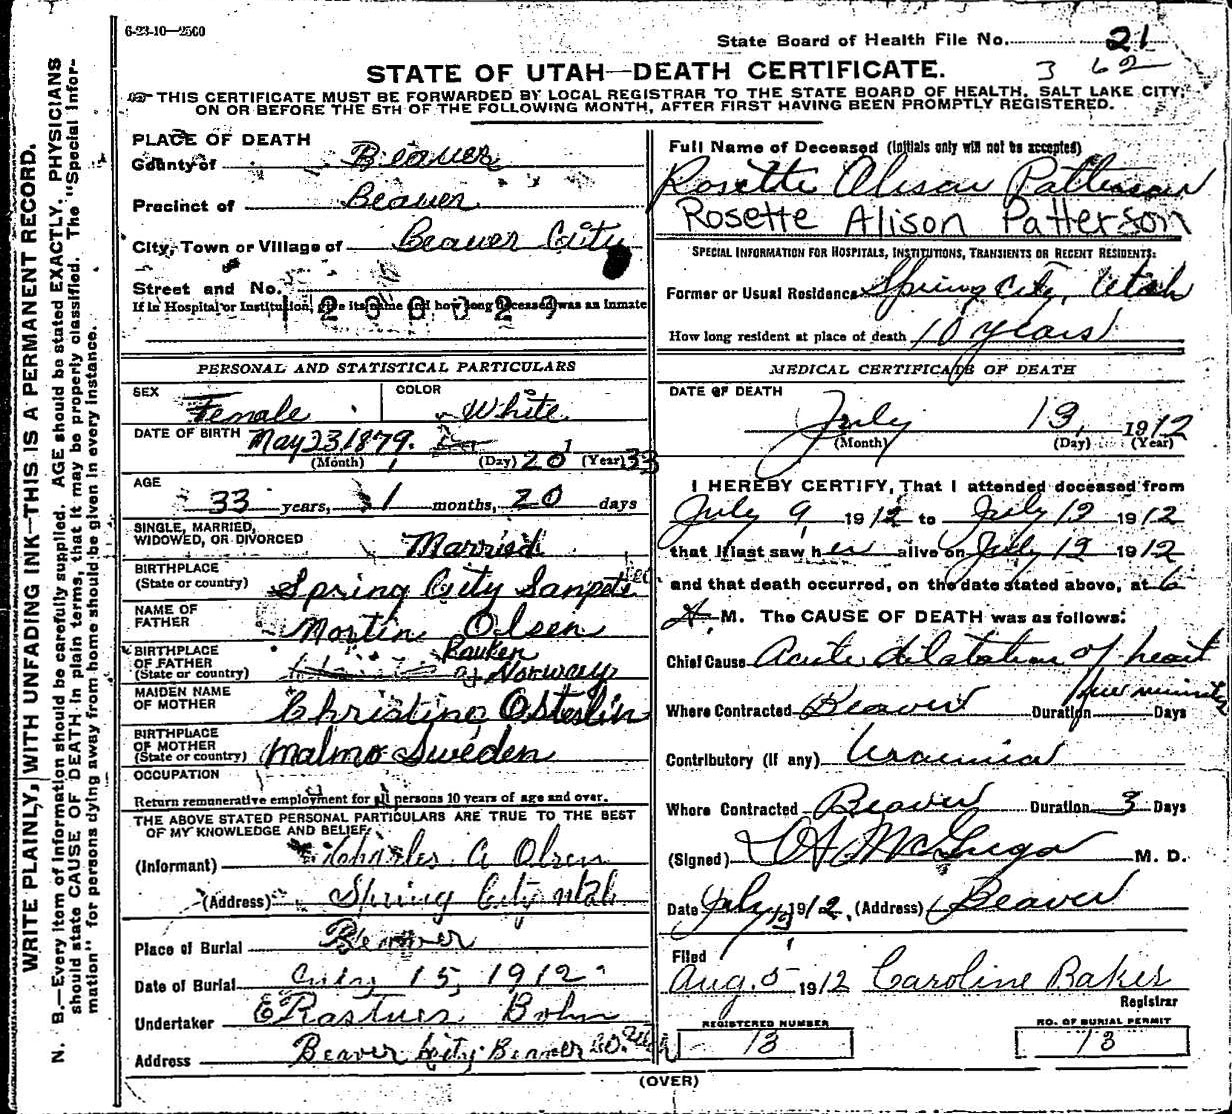 6-23-10—2500
State Board of Health File No. 21
3 62
STATE OF UTAH—DEATH CERTIFICATE.
THIS CERTIFICATE MUST BE FORWARDED BY LOCAL REGISTRAR TO THE STATE BOARD OF HEALTH, SALT LAKE CITY,
ON OR BEFORE THE 5TH OF THE FOLLOWING MONTH, AFTER FIRST HAVING BEEN PROMPTLY REGISTERED.
WRITE PLAINLY, WITH UNFADING INK—THIS IS A PERMANENT RECORD.
N. B.—Every item of information should be carefully supplied. AGE should be stated EXACTLY. PHYSICIANS
should state CAUSE OF DEATH in plain terms, that it may be properly classified. The "Special Infor-
mation" for persons dying away from home should be given in every instance.
PLACE OF DEATH
County of Beaver
Precinct of Beaver
City, Town or Village of Beaver City
Street and No.
If in Hospital or Institution, give its name and how long deceased was an inmate
PERSONAL AND STATISTICAL PARTICULARS
SEX Female
COLOR White
DATE OF BIRTH May 23, 1879. 20 1 33
(Month) (Day) (Year)
AGE
33 years, 1 months, 20 days
SINGLE, MARRIED,
WIDOWED, OR DIVORCED Married
BIRTHPLACE
(State or country) Spring City Sanpete
NAME OF
FATHER Mortin Olsen
BIRTHPLACE
OF FATHER
(State or country) Norway
MAIDEN NAME
OF MOTHER Christine Osterlin
BIRTHPLACE
OF MOTHER
(State or country) Malmo Sweden
OCCUPATION
Return remunerative employment for all persons 10 years of age and over.
THE ABOVE STATED PERSONAL PARTICULARS ARE TRUE TO THE BEST
OF MY KNOWLEDGE AND BELIEF.
(Informant) Charles A Olsen
(Address) Spring City Utah
Place of Burial Beaver
Date of Burial July 15, 1912
Undertaker ERastues Bohn
Address Beaver City Beaver Co. Utah
Full Name of Deceased (Initials only will not be accepted)
Rosette Alison Patterson
Rosette Alison Patterson
SPECIAL INFORMATION FOR HOSPITALS, INSTITUTIONS, TRANSIENTS OR RECENT RESIDENTS:
Former or Usual Residence Spring City, Utah
How long resident at place of death 10 years
MEDICAL CERTIFICATE OF DEATH
DATE OF DEATH
July 13, 1912
(Month) (Day) (Year)
I HEREBY CERTIFY, That I attended deceased from
July 9, 1912 to July 13 1912
that I last saw her alive on July 13 1912
and that death occurred, on the date stated above, at 6
A. M. The CAUSE OF DEATH was as follows:
Chief Cause Acute dilatation of heart
few minutes
Where Contracted Beaver Duration Days
Contributory (if any) Uraemia
Where Contracted Beaver Duration 3 Days
(Signed) M. D.
Date July 13 1912, (Address) Beaver
Filed
Aug. 5 1912 Caroline Bakes
Registrar
REGISTERED NUMBER
13
NO. OF BURIAL PERMIT
13
(OVER)